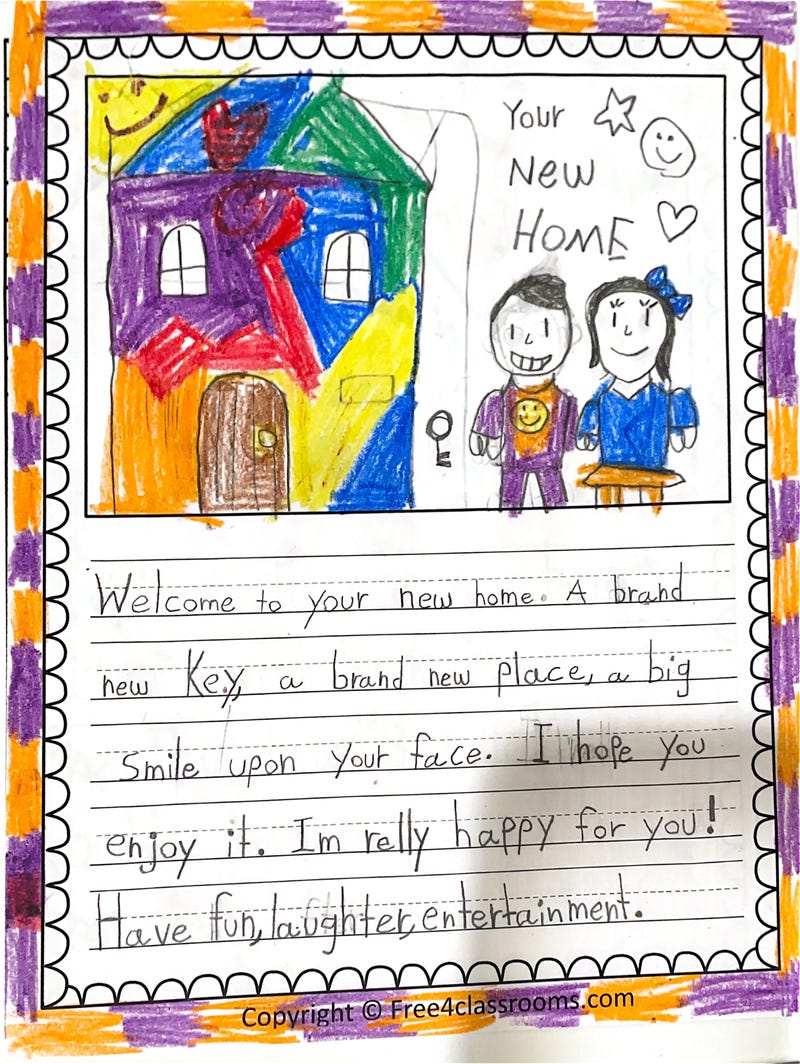 Your
New
HOME
Welcome to your new home. A brand
new Key, a brand new place, a big
Smile upon your face. I hope you
enjoy it. Im relly happy for you!
Have fun, laughter, entertainment.
Copyright © Free4classrooms.com